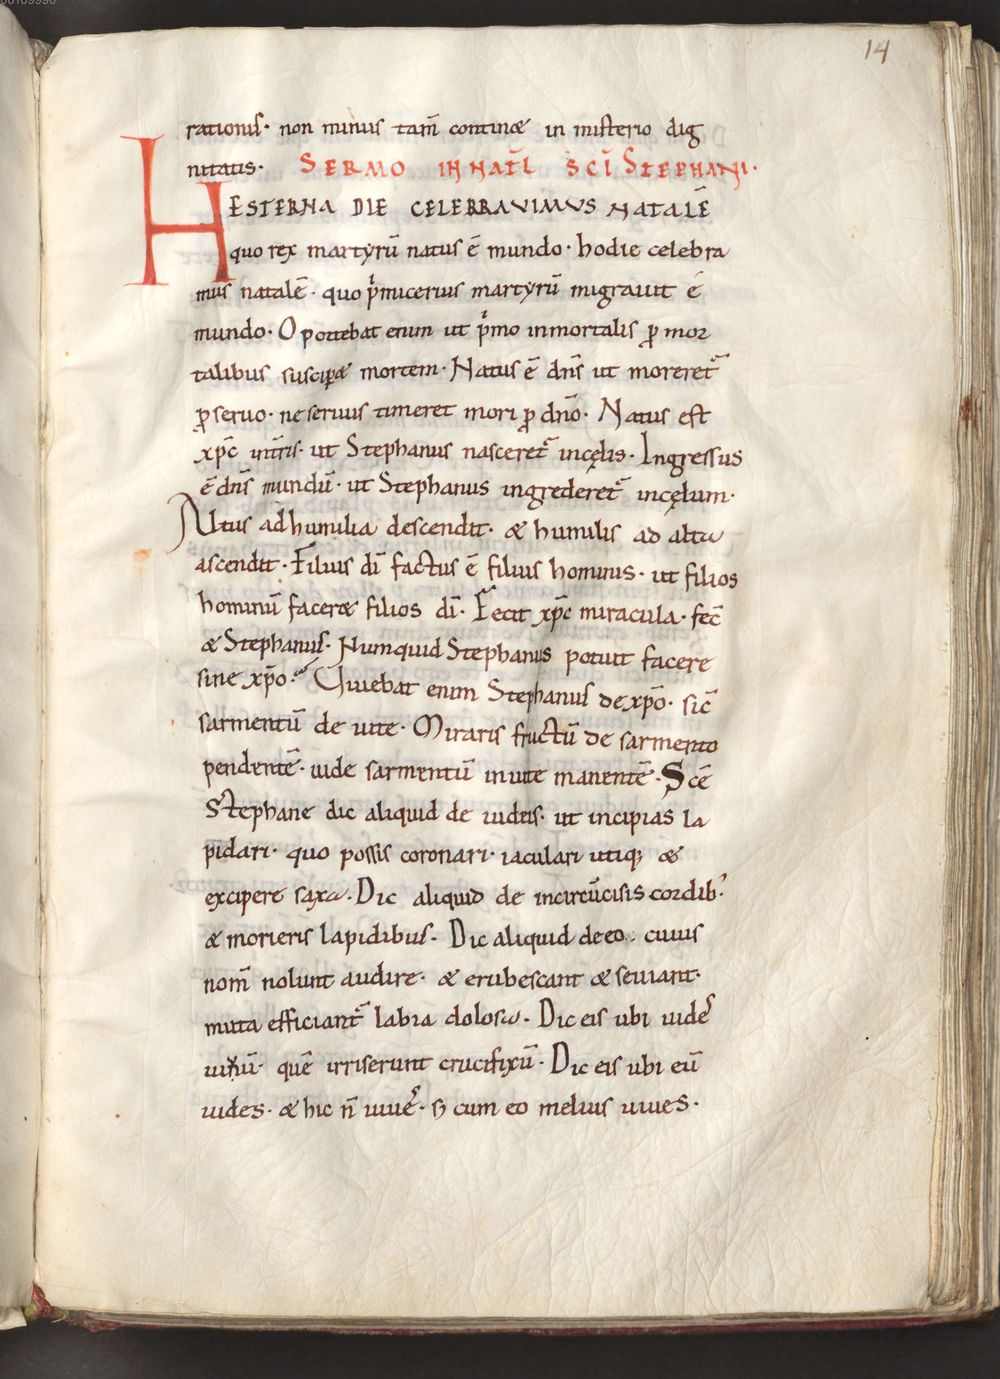 14
rationis· non minus tam̄ continæ in misterio dig
nitatis· SERMO IN NATL̄ SC̄I STEPHANI·
HESTERNA DIE CELEBRAVIMVS NATALĒ
quo rex martyrū natus ē mundo· hodie celebra
mus natalē· quo pͥmicerius martyrū migrauit e
mundo· Oportebat enim ut pͥmo inmortalis ꝓ mor
talibus suscipæ mortem· Natus ē dn̄s ut moreret᷒
ꝓ seruo· ne seruus timeret mori ꝓ dn̄o· Natus est
xp̄c in tr̄is· ut Stephanus nasceret᷒ incęlis· Ingressus
ē dn̄s mundū· ut Stephanus ingrederet᷒ incęlum·
Altus adhumilia descendit· & humilis ad alta
ascendit· Filius dī factus ē filius hominis· ut filios
hominū faceræ filios dī· Fecit xp̄c miracula· fec̄
& Stephanus· Numquid Stephanus potuit facere
sine xp̄o· Viuebat enim Stephanus dexp̄o· sic̄
sarmentū de uite· Miraris fructū de sarmento
pendentē· uide sarmentū inuite manentē· Sc̄e
Stephane dic aliquid de iudeis· ut incipias la
pidari· quo possis coronari· iaculari utiq; &
excipere saxa· Dic aliquid de incircūcisis cordib·
& morieris lapidibus· Dic aliquid deeo· cuius
nom̄ nolunt audire· & erubescant & seuiant·
muta efficiant᷒ labia dolosa· Dic eis ubi uides
uiuū· quē irriserunt crucifixū· Dic eis ubi eū
uides· & hic n̄ uiues· s; cum eo melius uiues·